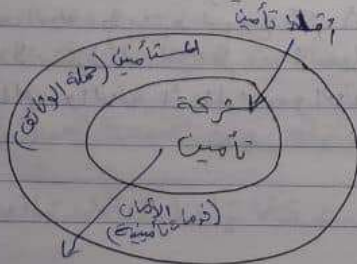 اقساط تأمين
المستأمنين (حملة الوثائق)
شركة
تأمين
الأمان
(خدمات تأمينية)